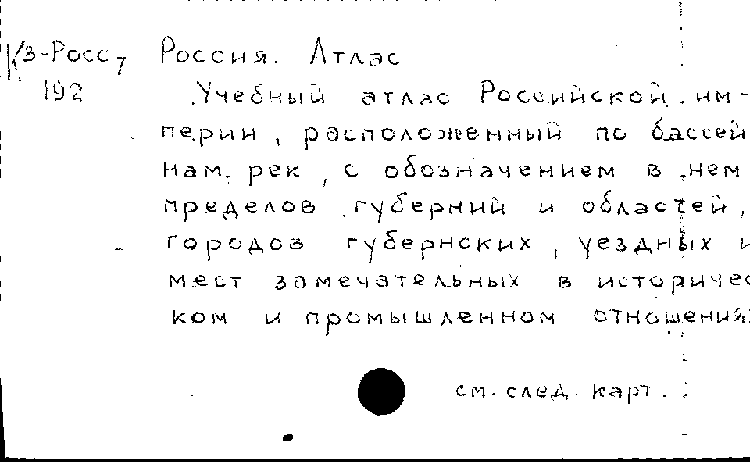 К3-Росс, Россия. Атлас
192 Учебный атлас Российской им-
перии, расположенный по бассей
нам рек, с обозначением в нем
пределов губерний и областей,
городов губернских, уездных и
мест замечательных в историчес
ком и промышленном отношениях
см. след. карт.